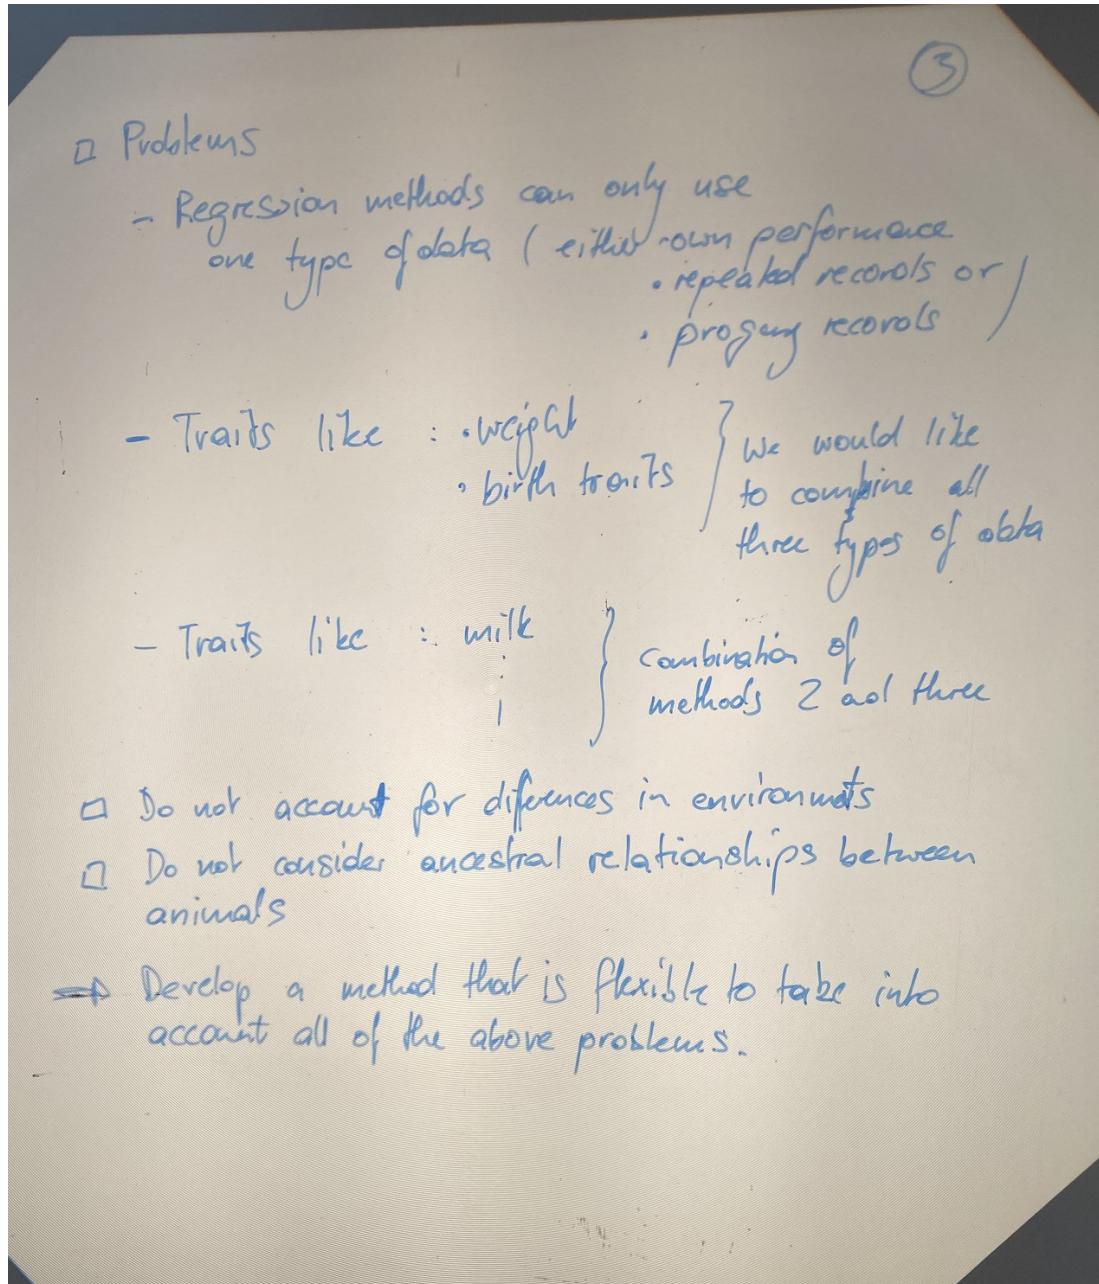 ③
□ Problems
- Regression methods can only use
one type of data ( either · own performance
· repeated records or )
· progeny records
- Traits like : · weight
· birth traits } We would like
to combine all
three types of data
- Traits like : milk } combination of
methods 2 ad three
□ Do not account for difences in environmets
□ Do not consider ancestral relationships between
animals
⇒ Develop a method that is flexible to take into
account all of the above problems.